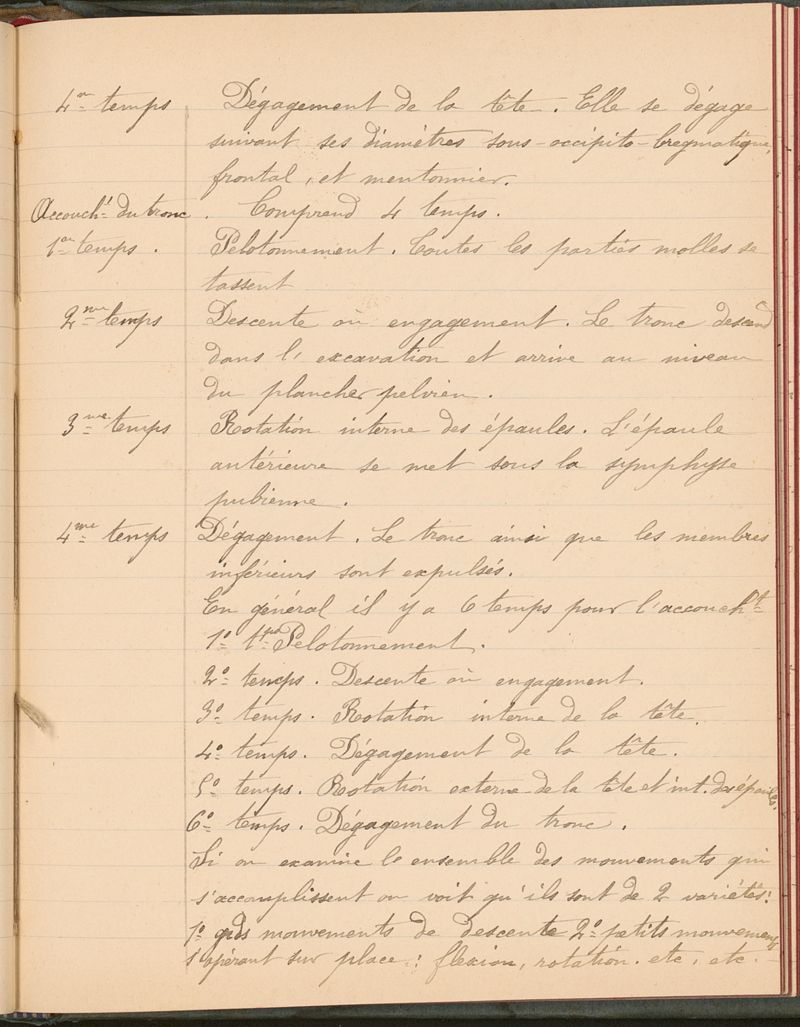 4e temps Dégagement de la tête. Elle se dégage
suivant ses diamètres sous-occipito-bregmatique,
frontal, et mentonnier.
Accoucht du tronc. Comprend 4 temps.
1er temps. Pelotonnement. Toutes les parties molles se
tassent
2me temps Descente ou engagement. Le tronc descend
dans l'excavation et arrive au niveau
du plancher pelvien.
3me temps Rotation interne des épaules. L'épaule
antérieure se met sous la symphyse
pubienne.
4me temps Dégagement. Le tronc ainsi que les membres
inférieurs sont expulsés.
En général il y a 6 temps pour l'accoucht
1o tps Pelotonnement.
2o temps. Descente ou engagement.
3o temps. Rotation interne de la tête.
4o temps. Dégagement de la tête.
5o temps. Rotation externe de la tête et int. des épaules.
6o temps. Dégagement du tronc.
Si on examine le ensemble des mouvements qui
s'accomplissent on voit qu'ils sont de 2 variétés:
1o gds mouvements de descente 2o petits mouvements
s'opérant sur place: flexion, rotation. etc, etc.-